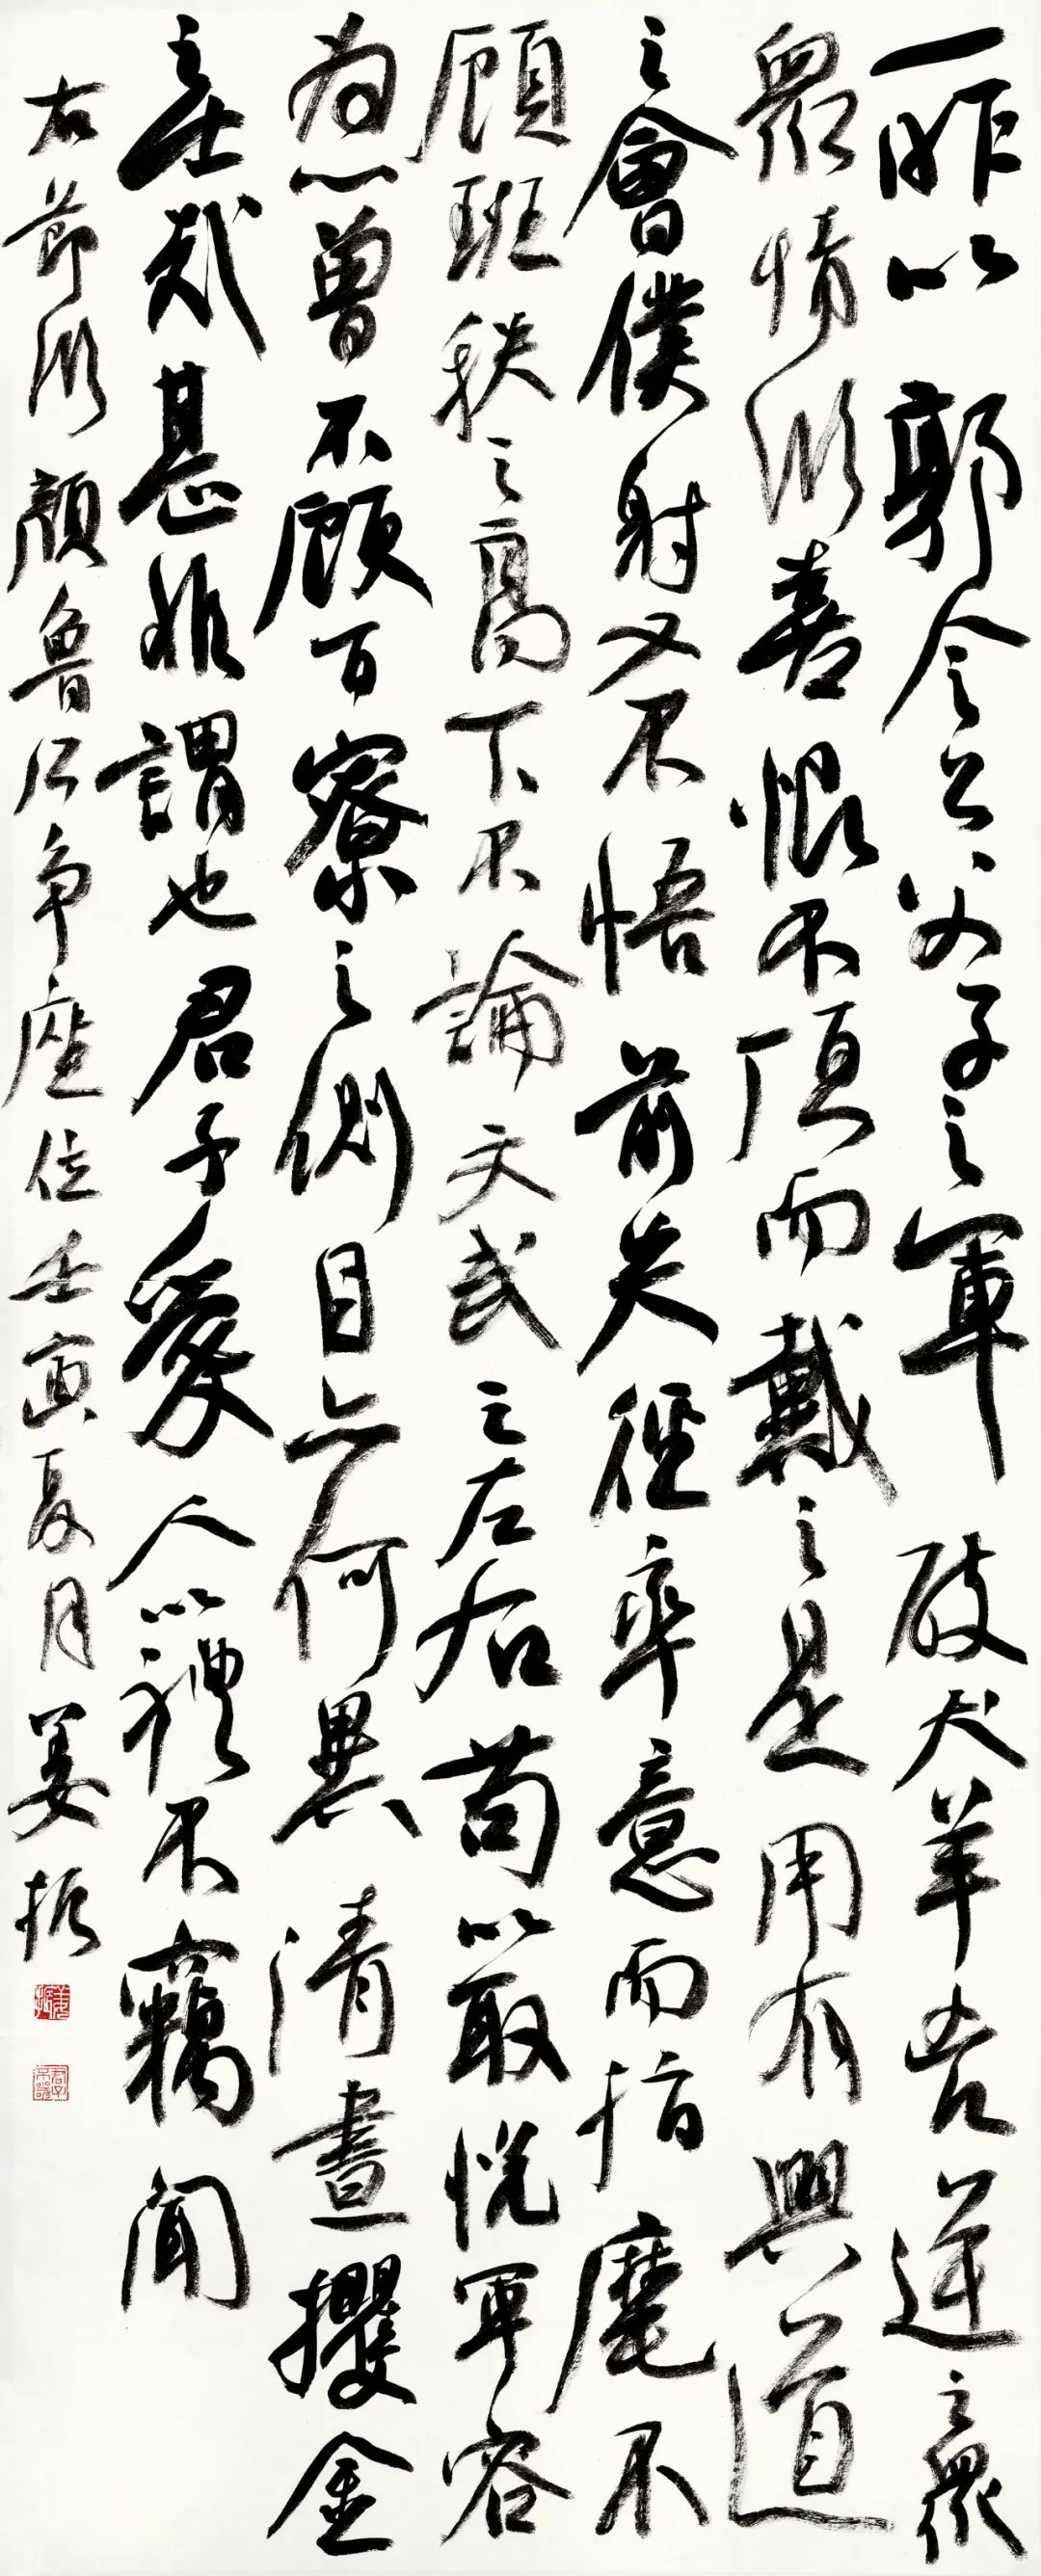 一昨以郭令公父子之軍破犬羊凶逆之衆
衆情欣喜恨不頂而戴之是用有興道
之會僕射又不悟前失徑率意而指麾不
顧班秩之高下不論文武之左右苟以取悦軍容
為心曾不顧百寮之側目亦何異清晝攫金
之士哉甚非謂也君子愛人以禮不竊聞
右節臨顏魯公争座位壬寅夏月姜振